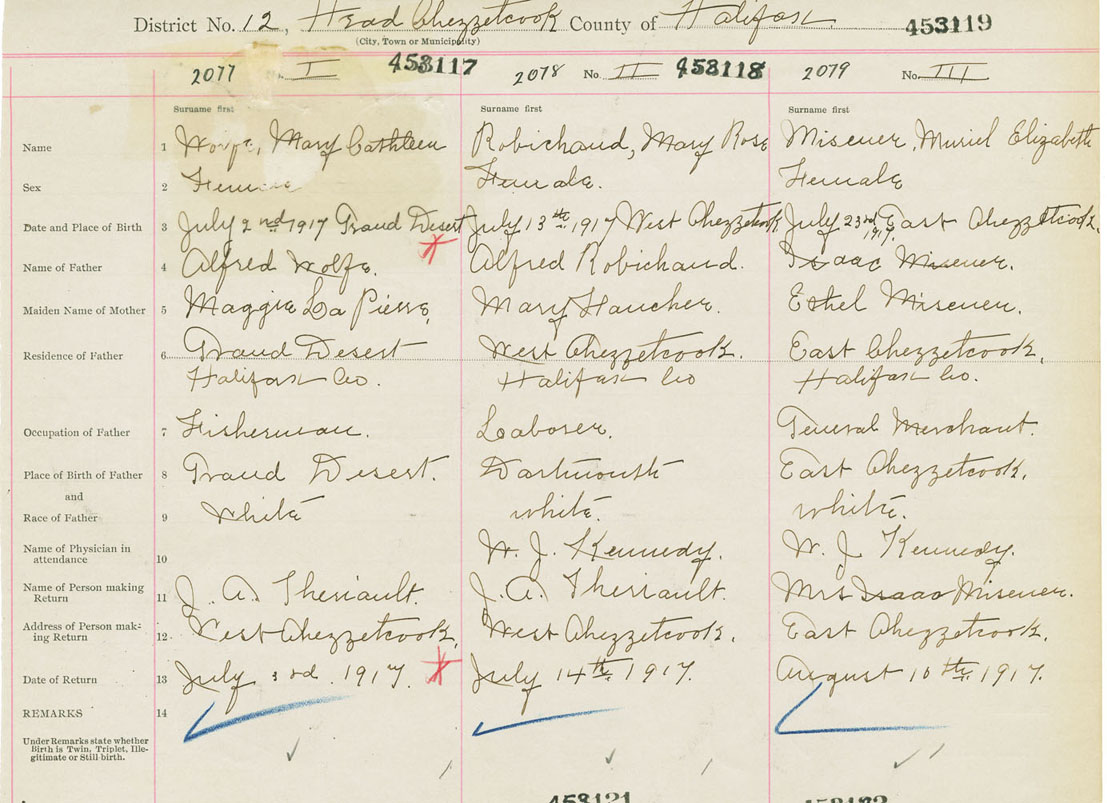 District No. 12, Head Chezzetcook County of Halifax 453119
(City, Town or Municipality)
2077 No. I 453117 2078 No. II 453118 2079 No. III
Surname first Surname first Surname first
Name 1 Wolfe, Mary Cathleen Robichaud, Mary Rose Misener, Muriel Elizabeth
Sex 2 Female Female. Female
Date and Place of Birth 3 July 2nd 1917 Grand Desert July 13th 1917 West Chezzetcook July 23rd 1917, East Chezzetcook.
Name of Father 4 Alfred Wolfe. Alfred Robichaud. Isaac Misener.
Maiden Name of Mother 5 Maggie La Pierre, Mary Faucher. Ethel Misener.
Residence of Father 6 Grand Desert West Chezzetcook. East Chezzetcook,
Halifax Co. Halifax Co Halifax Co.
Occupation of Father 7 Fisherman. Laborer. General Merchant.
Place of Birth of Father 8 Grand Desert. Dartmouth East Chezzetcook.
and
Race of Father 9 White white. white.
Name of Physician in attendance 10 W. J. Kennedy. W. J. Kennedy.
Name of Person making Return 11 J. A. Theriault. J. A. Theriault. Mrs Isaac Misener.
Address of Person making Return 12 West Chezzetcook, West Chezzetcook. East Chezzetcook.
Date of Return 13 July 3rd. 1917. July 14th 1917. August 10th, 1917.
REMARKS 14
Under Remarks state whether
Birth is Twin, Triplet, Ille-
gitimate or Still birth.
453121